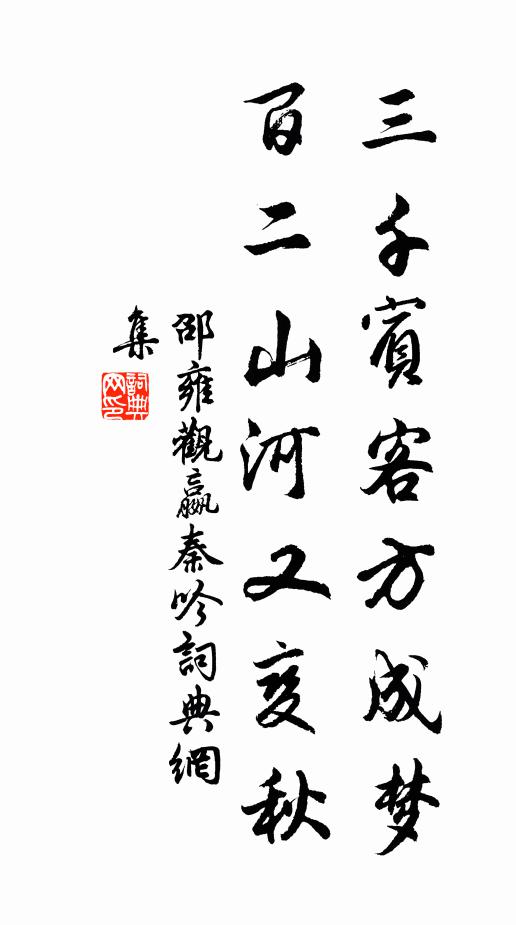 三千賓客方成梦
百二山河又变秋
邵雍觀嬴秦吟詞典網
集
詞典
网印